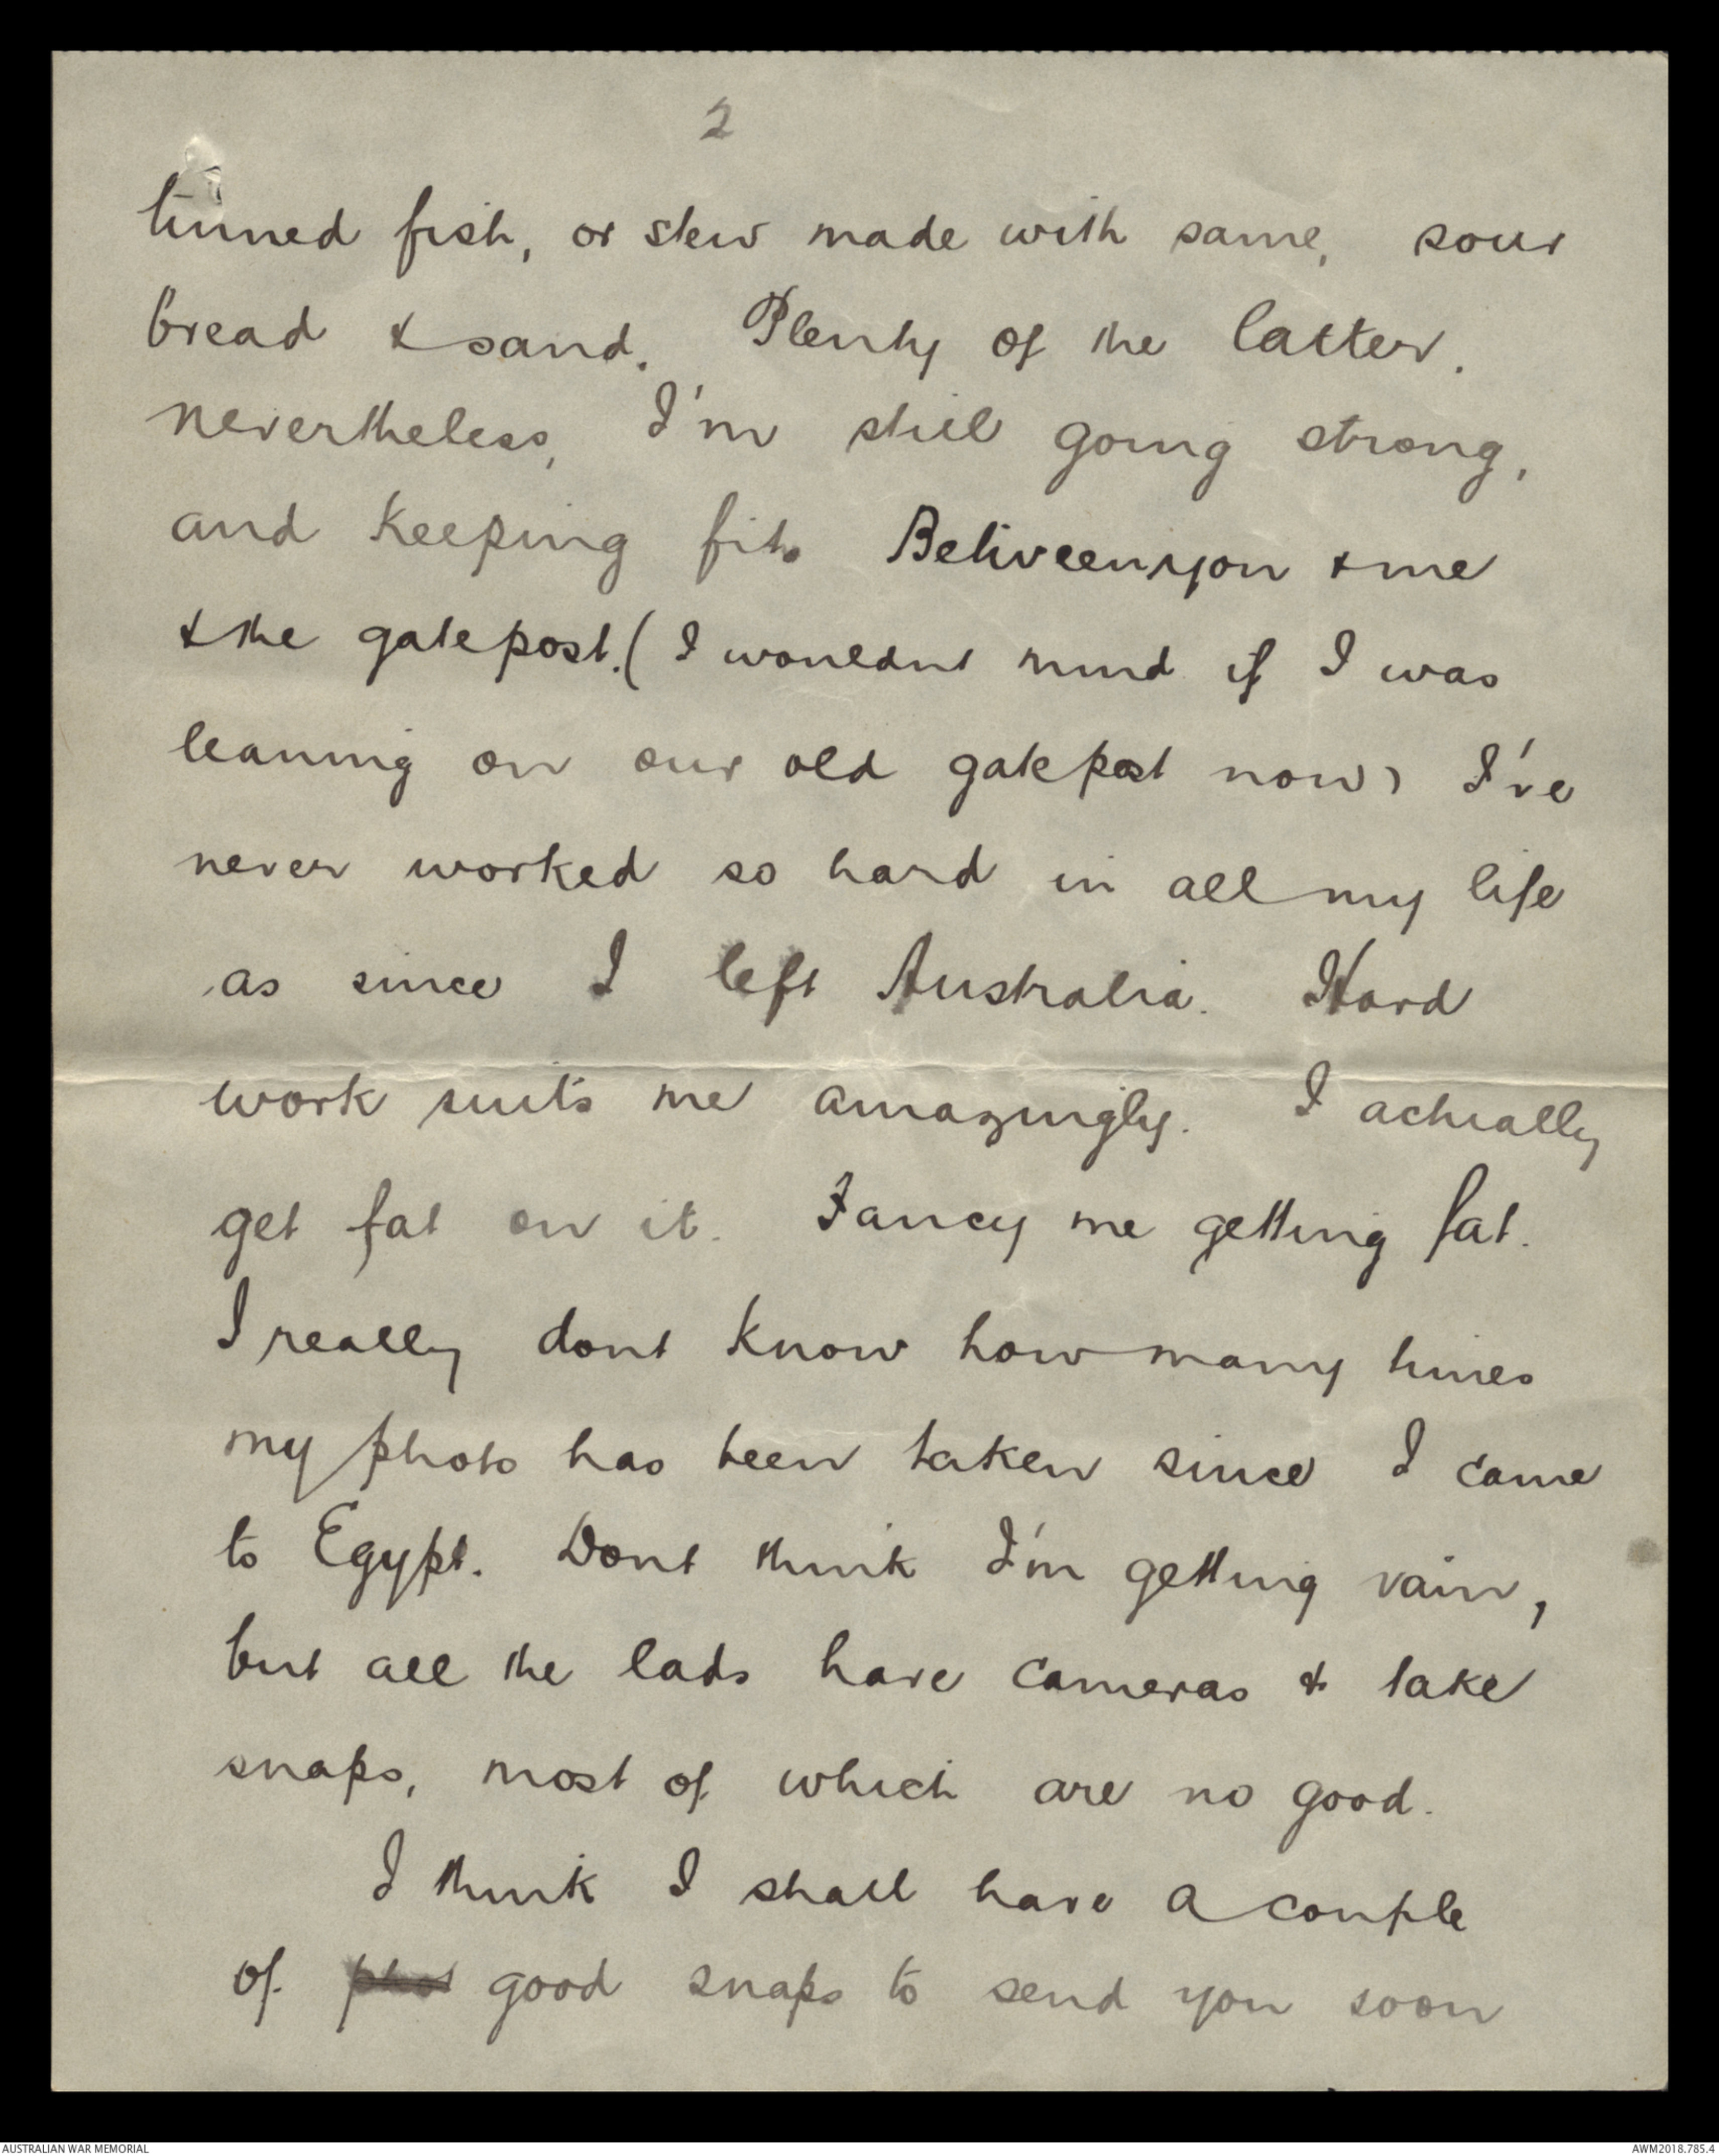 2
tinned fish, or stew made with same, sour
bread & sand. Plenty of the latter.
nevertheless, I'm still going strong,
and keeping fit. Between you & me
& the gatepost. (I wouldnt mind if I was
leaning on our old gatepost now) I've
never worked so hard in all my life
as since I left Australia. Hard
work suits me amazingly. I actually
get fat on it. Fancy me getting fat.
I really dont know how many times
my photo has been taken since I came
to Egypt. Dont think I'm getting vain,
but all the lads have cameras & take
snaps, most of which are no good.
I think I shall have a couple
of phot good snaps to send you soon
AUSTRALIAN WAR MEMORIAL
AWM2018.785.4